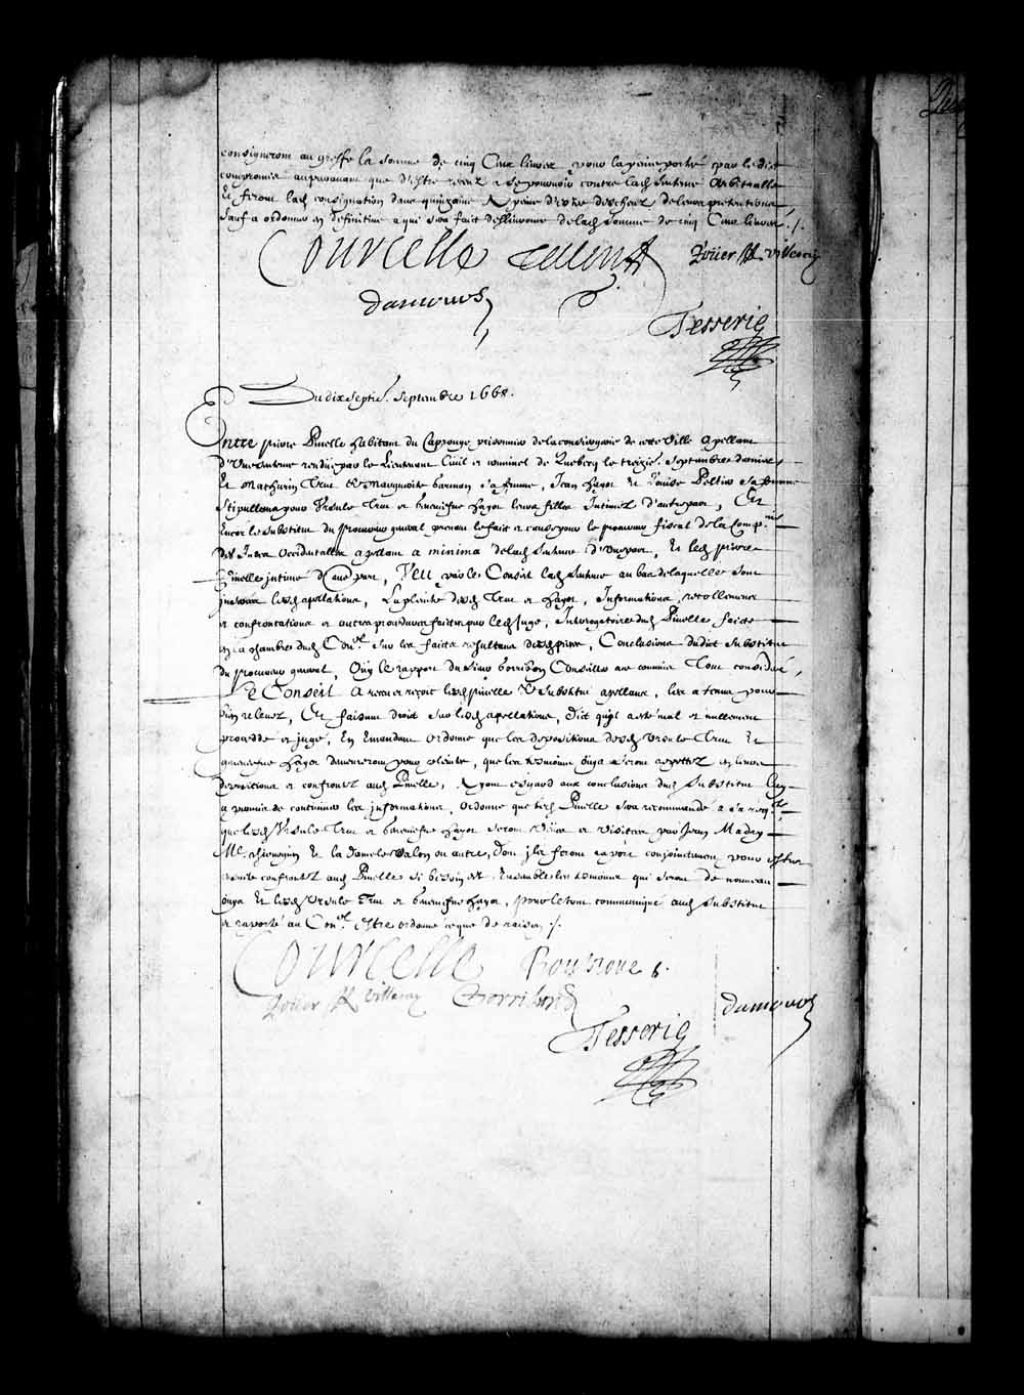 consigneront au greffe la somme de cinq Cens livres pour la peine portée par led
compromis auparavant que d'estre receus a se pourvoir contre lad Sentence Arbitralle
Et feront lad consignation dans quinzaine A peine d'estre descheus de leurs pretentions
Sauf a ordonner en definitive a qui sera fait deslivrance de lad somme de cinq Cens livres ./.
Courcelle Tallon Roüer de Villeray
damours
Tesserie
Du dix septie. Septembre 1668.
Entre pierre Pinelle habitant du Caprouge prisonnier de la conciergerie de cette Ville Apellant
d'Une sentence rendüe par le Lieutenant Civil et criminel de Quebecq le treizie. Septembre dernier
Et Mathurin Tru & Marguerite sa femme, Jean hayot & Louise Peltier sa femme
Stipullans pour Ursule Tru et Geneviefve hayot leurs filles Intimez d'autre part, Et
Encor le Substitut du procureur general prenant le fait et cause pour le procureur fiscal de la Comp.nie
des Indes Occidentalles apellant a minima de lad Sentence d'Une part, Et led pierre
Pinelle intimé d'autre part, VEU par le Conseil lad Sentence au bas de laquelle sont
lesd apellations, La plainte desd Tru et hayot, Informations, recollemens
et confrontations et autres procedures faites par led Juge, Interrogatoire dud Pinelle faict
en la chambre dud Con.el sur les faits resultans desd pieces, Conclusions dudict Substitut
du procureur general, Ouy le rapport du Sieur Gorribon Conseiller tout consideré,
Le Conseil A receu et reçoit lesd pinelle & Substitut apellans, les a tenus pour
bien relevez, Et faisant droit sur lesd apellations, dict qu'il a esté mal et nullement
procedde et jugé, En Emendant ordonne que les depositions desd Ursule Tru Et
Geneviefve hayot demeureront pour plainte, que les tesmoins ouys seront repettez en leurs
depositions et confrontez aud Pinelle, Ayant esgard aux conclusions dud Substitut luy
a permis de continuer les informations, ordonne que led Pinelle sera recommandé a sa req.te
que lesd Ursule Tru et Geneviefve hayot seront veües et visitées par Jean Madry
M.e chirurgien Et la dame ou autre, dont ils feront rapport conjointement pour estre
ensuite confrontez aud Pinelle si besoin est, Ensemble les tesmoins qui seront de nouveau
ouys Et lesd Ursule Tru et Geneviefve hayot, pour le tout communiqué aud Substitut
et raporté au Con.el Estre ordonné ce que de raison ./.
Courcelle Bouteroue 6.
Roüer de Villeray Gorribon damours
Tesserie